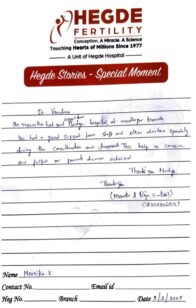 HEGDE
FERTILITY
Conception. A Miracle. A Science
Touching Hearts of Millions Since 1977
A Unit of Hegde Hospital
Hegde Stories - Special Moment
Dr. Vandana
had hospital at madhapur branch
We had a good support from staff and other doctors specially
during the consultation and treatment They help us conceive
and fulfill or parents dream achieved
Thankyou Hedge
Thankyou
Name Monika K
Contact No. Email id
Heg No. Branch Date